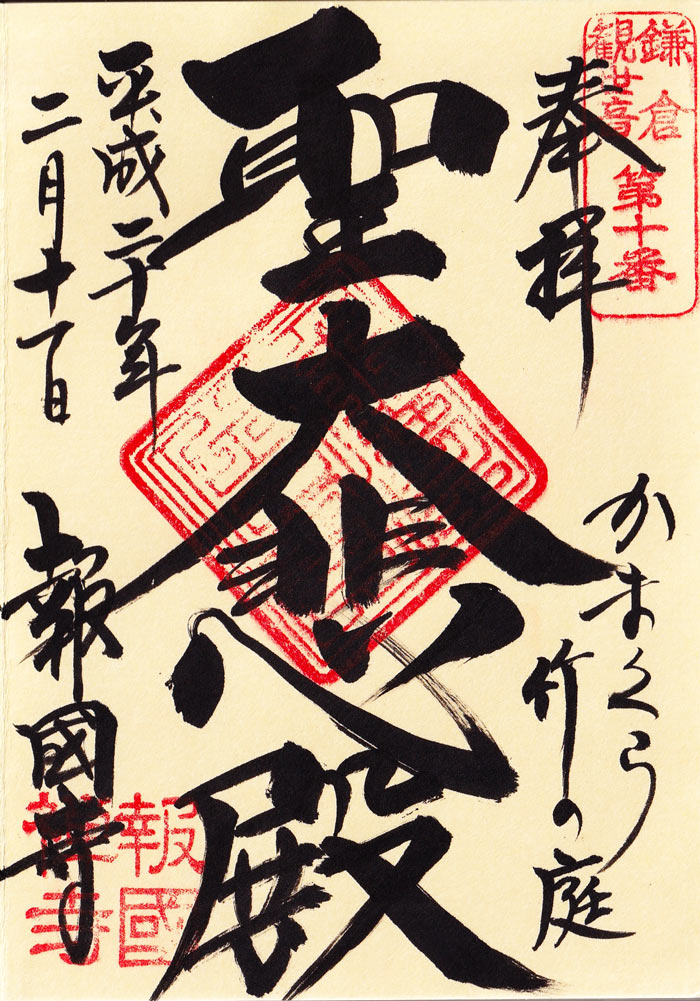 鎌倉
観世音
第十番
奉拝
かまくら
竹の庭
聖大悲殿
平成二十年
二月十一日
報國寺
報國
禅寺